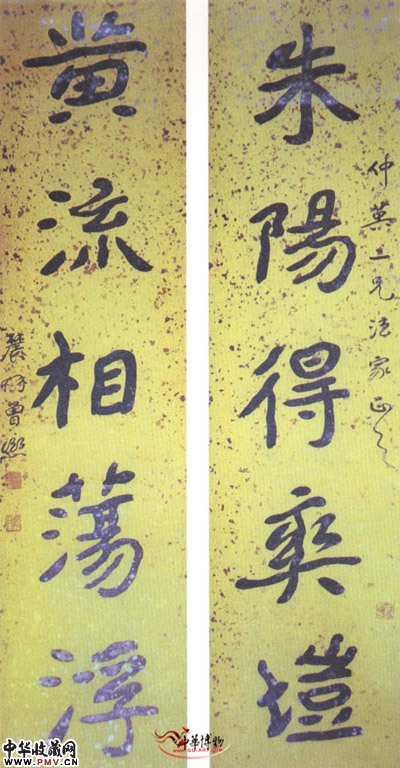 朱陽得爽塏
仲英二兄法家正之
黄流相蕩浮
農髯曾熙
中华收藏网
www.PMV.cn
中華博物